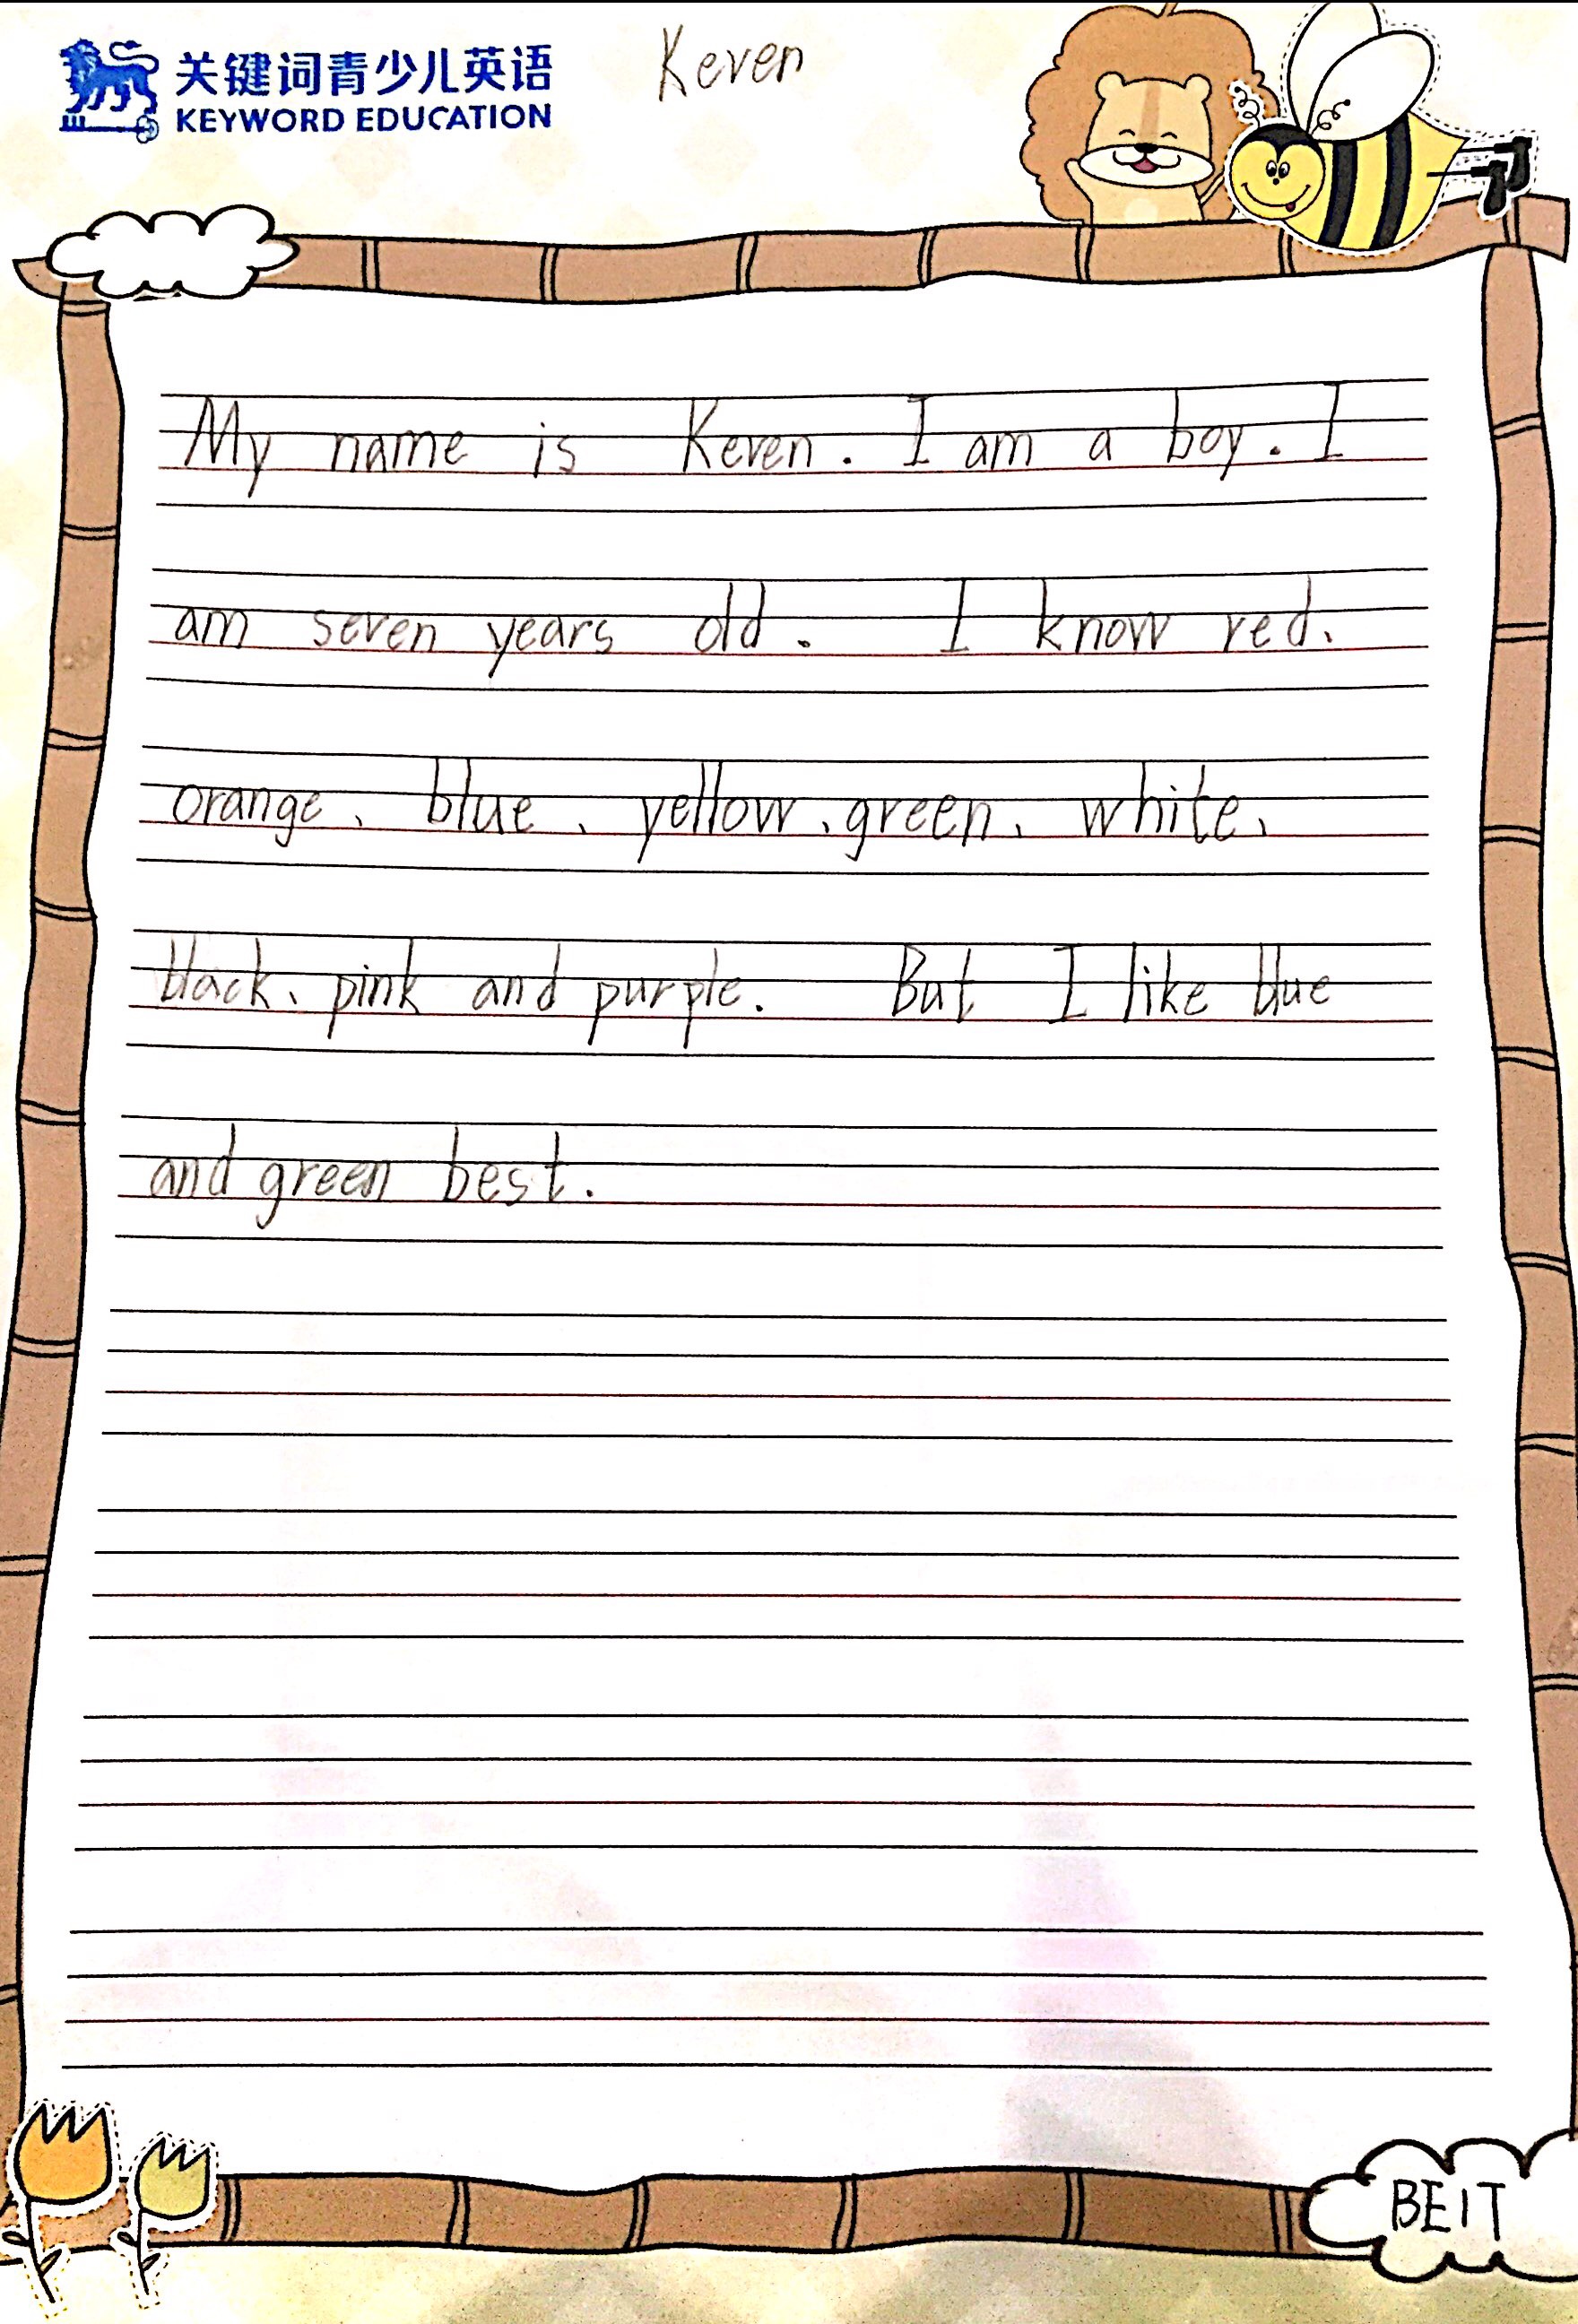 关键词青少儿英语
KEYWORD EDUCATION
Keven
My name is Keven. I am a boy. I
am seven years old. I know red、
orange、blue、yellow、green、white、
black、pink and purple. But I like blue
and green best.
BEIT